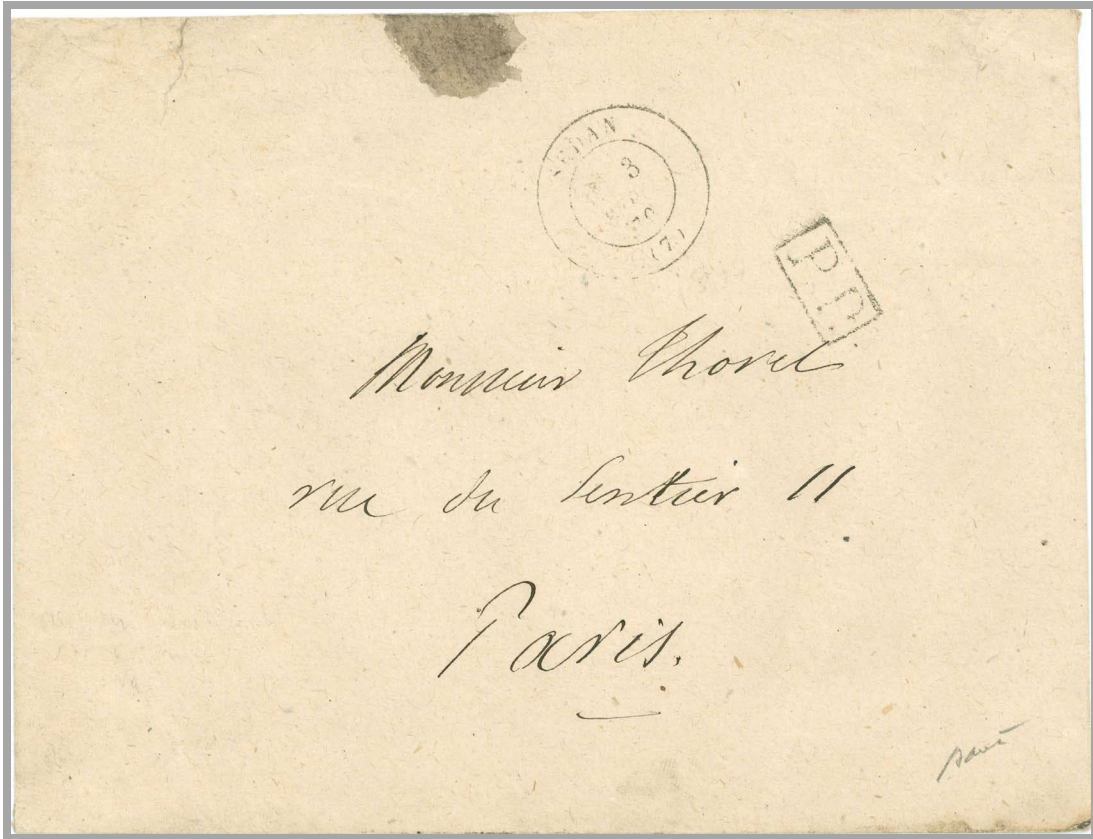 SEDAN
3
(7)
P.P.
Monsieur Thorel
rue du Sentier 11
Paris.